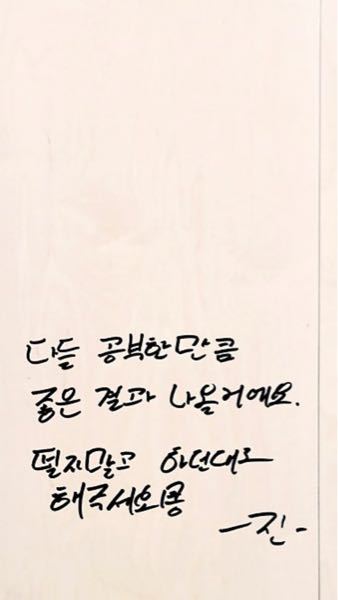 다들 공부한만큼
좋은 결과 나올거예요.
떨지말고 하던대로
해주세요용
-진-